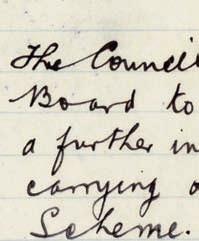 The Council
Board to
a further in
carrying o
Scheme.